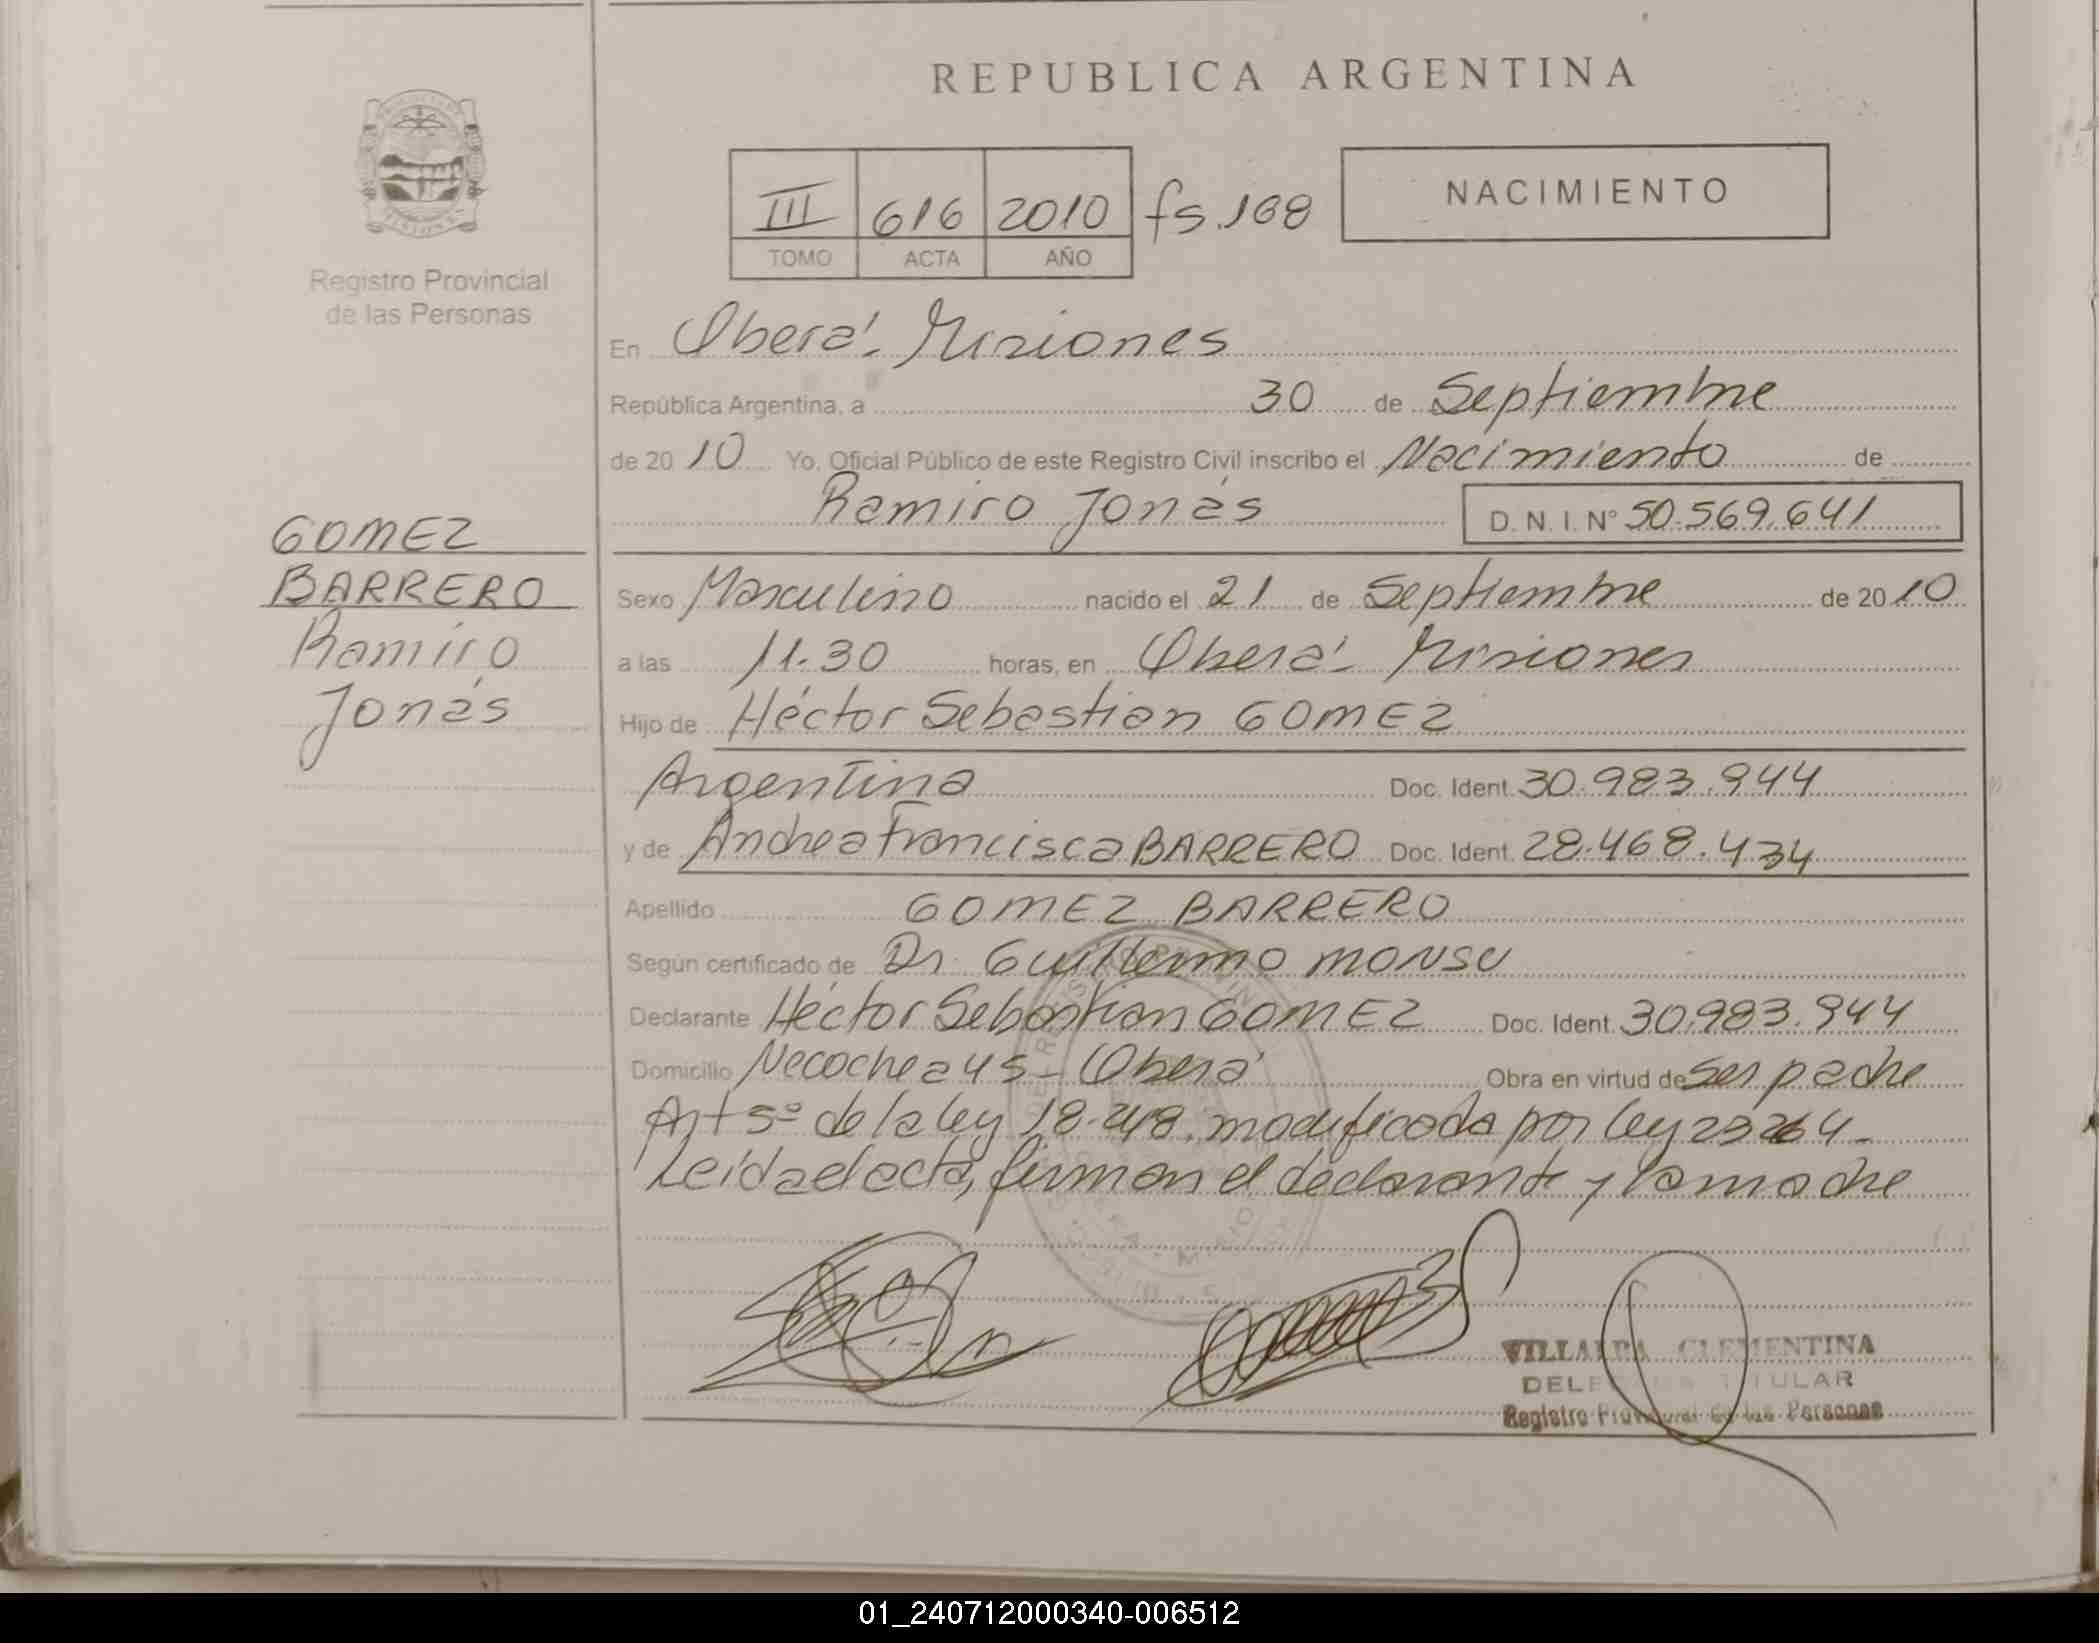 REPUBLICA ARGENTINA
III 616 2010 fs.168
TOMO ACTA AÑO
NACIMIENTO
Registro Provincial
de las Personas
En Oberá - Misiones
República Argentina, a 30 de Septiembre
de 2010 Yo, Oficial Público de este Registro Civil inscribo el Nacimiento de
Ramiro Jonás D. N. I. Nº 50.569.641
GOMEZ
BARRERO
Ramiro
Jonás
Sexo Masculino nacido el 21 de Septiembre de 2010
a las 11.30 horas, en Oberá - Misiones
Hijo de Héctor Sebastian GOMEZ
Argentina Doc. Ident. 30.983.944
y de Andrea Francisca BARRERO Doc. Ident. 28.468.434
Apellido GOMEZ BARRERO
Según certificado de Dr. Guillermo MONSU
Declarante Héctor Sebastian GOMEZ Doc. Ident. 30.983.944
Domicilio Necochea 45 - Oberá Obra en virtud de ser padre
Art 5º de la ley 18.248, modificada por ley 23264 -
Leida el acta, firman el declarante y la madre
VILLALBA CLEMENTINA
DELEGADA TITULAR
Registro Provincial de las Personas
01_240712000340-006512